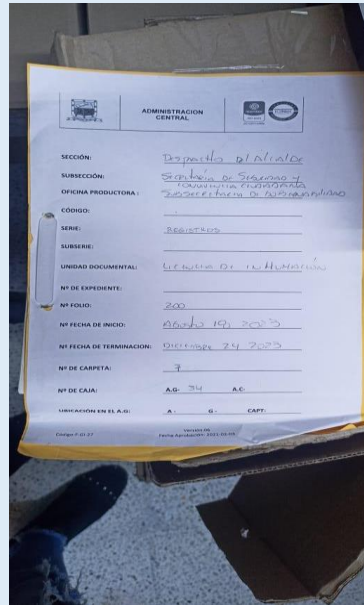 ADMINISTRACION
CENTRAL
SECCIÓN: Despacho Del Alcalde
SUBSECCIÓN: Secretaria de Seguridad y
convivencia ciudadana
OFICINA PRODUCTORA: Subsecretaria de
CÓDIGO:
SERIE: REGISTROS
SUBSERIE:
UNIDAD DOCUMENTAL: Licencia de inhumación
Nº DE EXPEDIENTE:
Nº FOLIO: 200
Nº FECHA DE INICIO: Agosto 19, 2023
Nº FECHA DE TERMINACION: Diciembre 24 2023
Nº DE CARPETA: 7
Nº DE CAJA: A.G- 34 A.C.
UBICACIÓN EN EL A.G: A - G - CAPT: